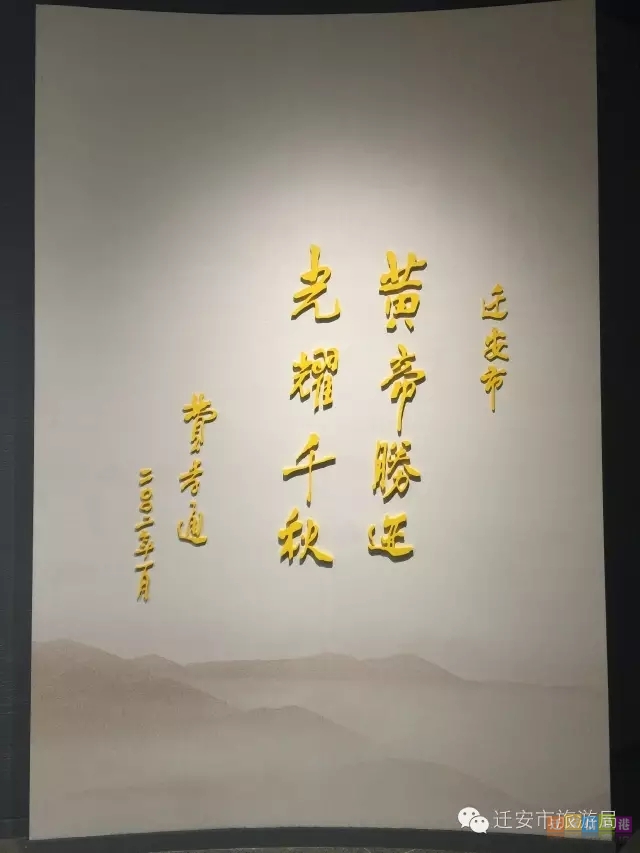 迁安市
黄帝勝迹
光耀千秋
费孝通
二〇〇二年一月
迁安市旅游局